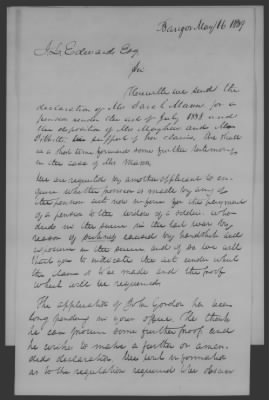 Bangor May 16 1839
J. L. Edwards Esq
Sir
Herewith we send the
declaration of Mrs Sarah Mann for a
pension under the act of July 1838 and
the deposition of Mrs and Mrs
in support of her claim. We shall
in a short time forward some further testimony
in the case of Mrs Mann.
We are requested by another applicant to en-
quire whether provision is made by any of
the pension acts now in force for the payment
of a pension to the widow of a soldier who
died in the service in the last war by
reason of caused by hardships and
exposure in the service and if so we will
thank you to indicate the act under which
the claim is to be made and the proof
which will be required.
The application of John Gordon has been
long pending in your office. He thinks
he can procure some further proof and
he wishes to make a further or amen-
ded declaration. We wish information
as to the regulation required. We